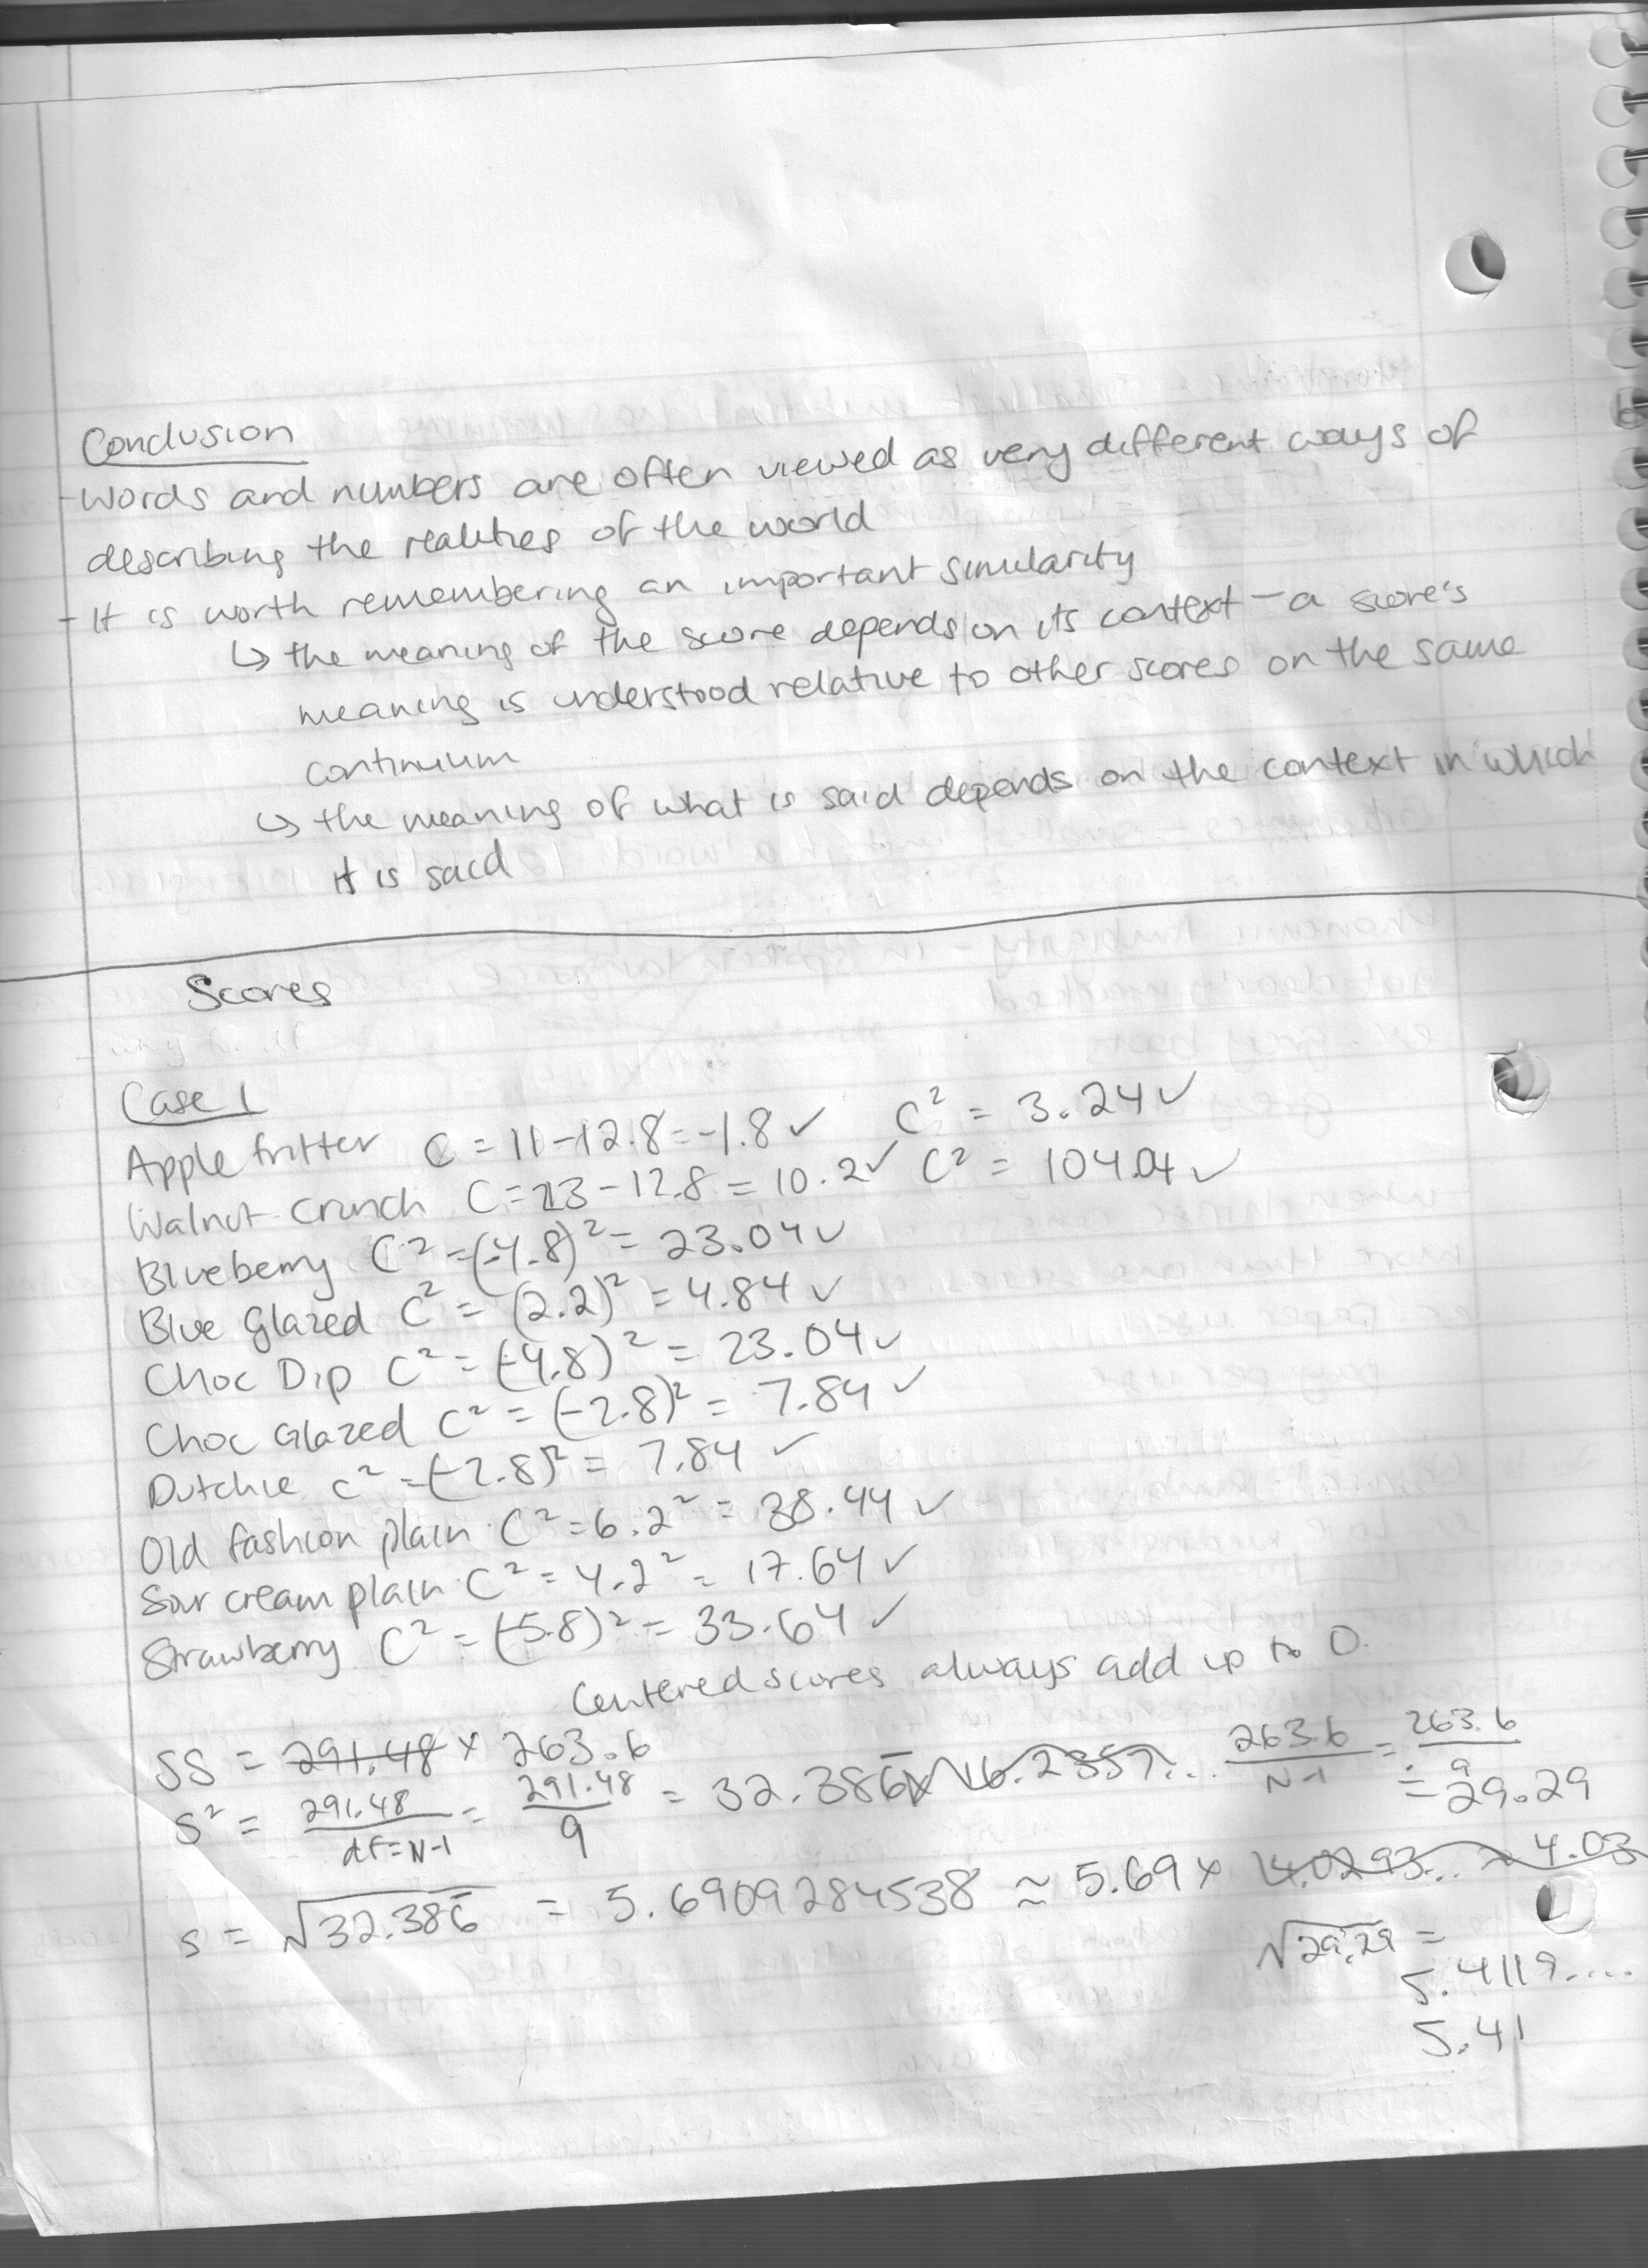 Conclusion
- Words and numbers are often viewed as very different ways of
describing the realities of the world
- It is worth remembering an important similarity
↳ the meaning of the score depends on its context - a score's
meaning is understood relative to other scores on the same
continuum
↳ the meaning of what is said depends on the context in which
it is said
Scores
Case 1
Apple fritter C = 11-12.8 = -1.8 ✓ C² = 3.24 ✓
Walnut Crunch C = 23 - 12.8 = 10.2 ✓ C² = 104.04 ✓
Blueberry C² = (-4.8)² = 23.04 ✓
Blue Glazed C² = (2.2)² = 4.84 ✓
Choc Dip C² = (-4.8)² = 23.04 ✓
Choc Glazed C² = (-2.8)² = 7.84 ✓
Dutchie C² = (-2.8)² = 7.84 ✓
Old fashion plain C² = 6.2² = 38.44 ✓
Sour cream plain C² = 4.2² = 17.64 ✓
Strawberry C² = (-5.8)² = 33.64 ✓
Centered scores always add up to 0.
SS = 291.48 x 263.6
S² = 291.48 / df = N-1 = 291.48 / 9 = 32.386 x 16.2357... 263.6 / N-1 = 263.6 / 9 = 29.29
s = √32.386 = 5.6909284538 ≈ 5.69 x 4.0293... ≈ 4.03
√29.29 =
5.4119....
5.41